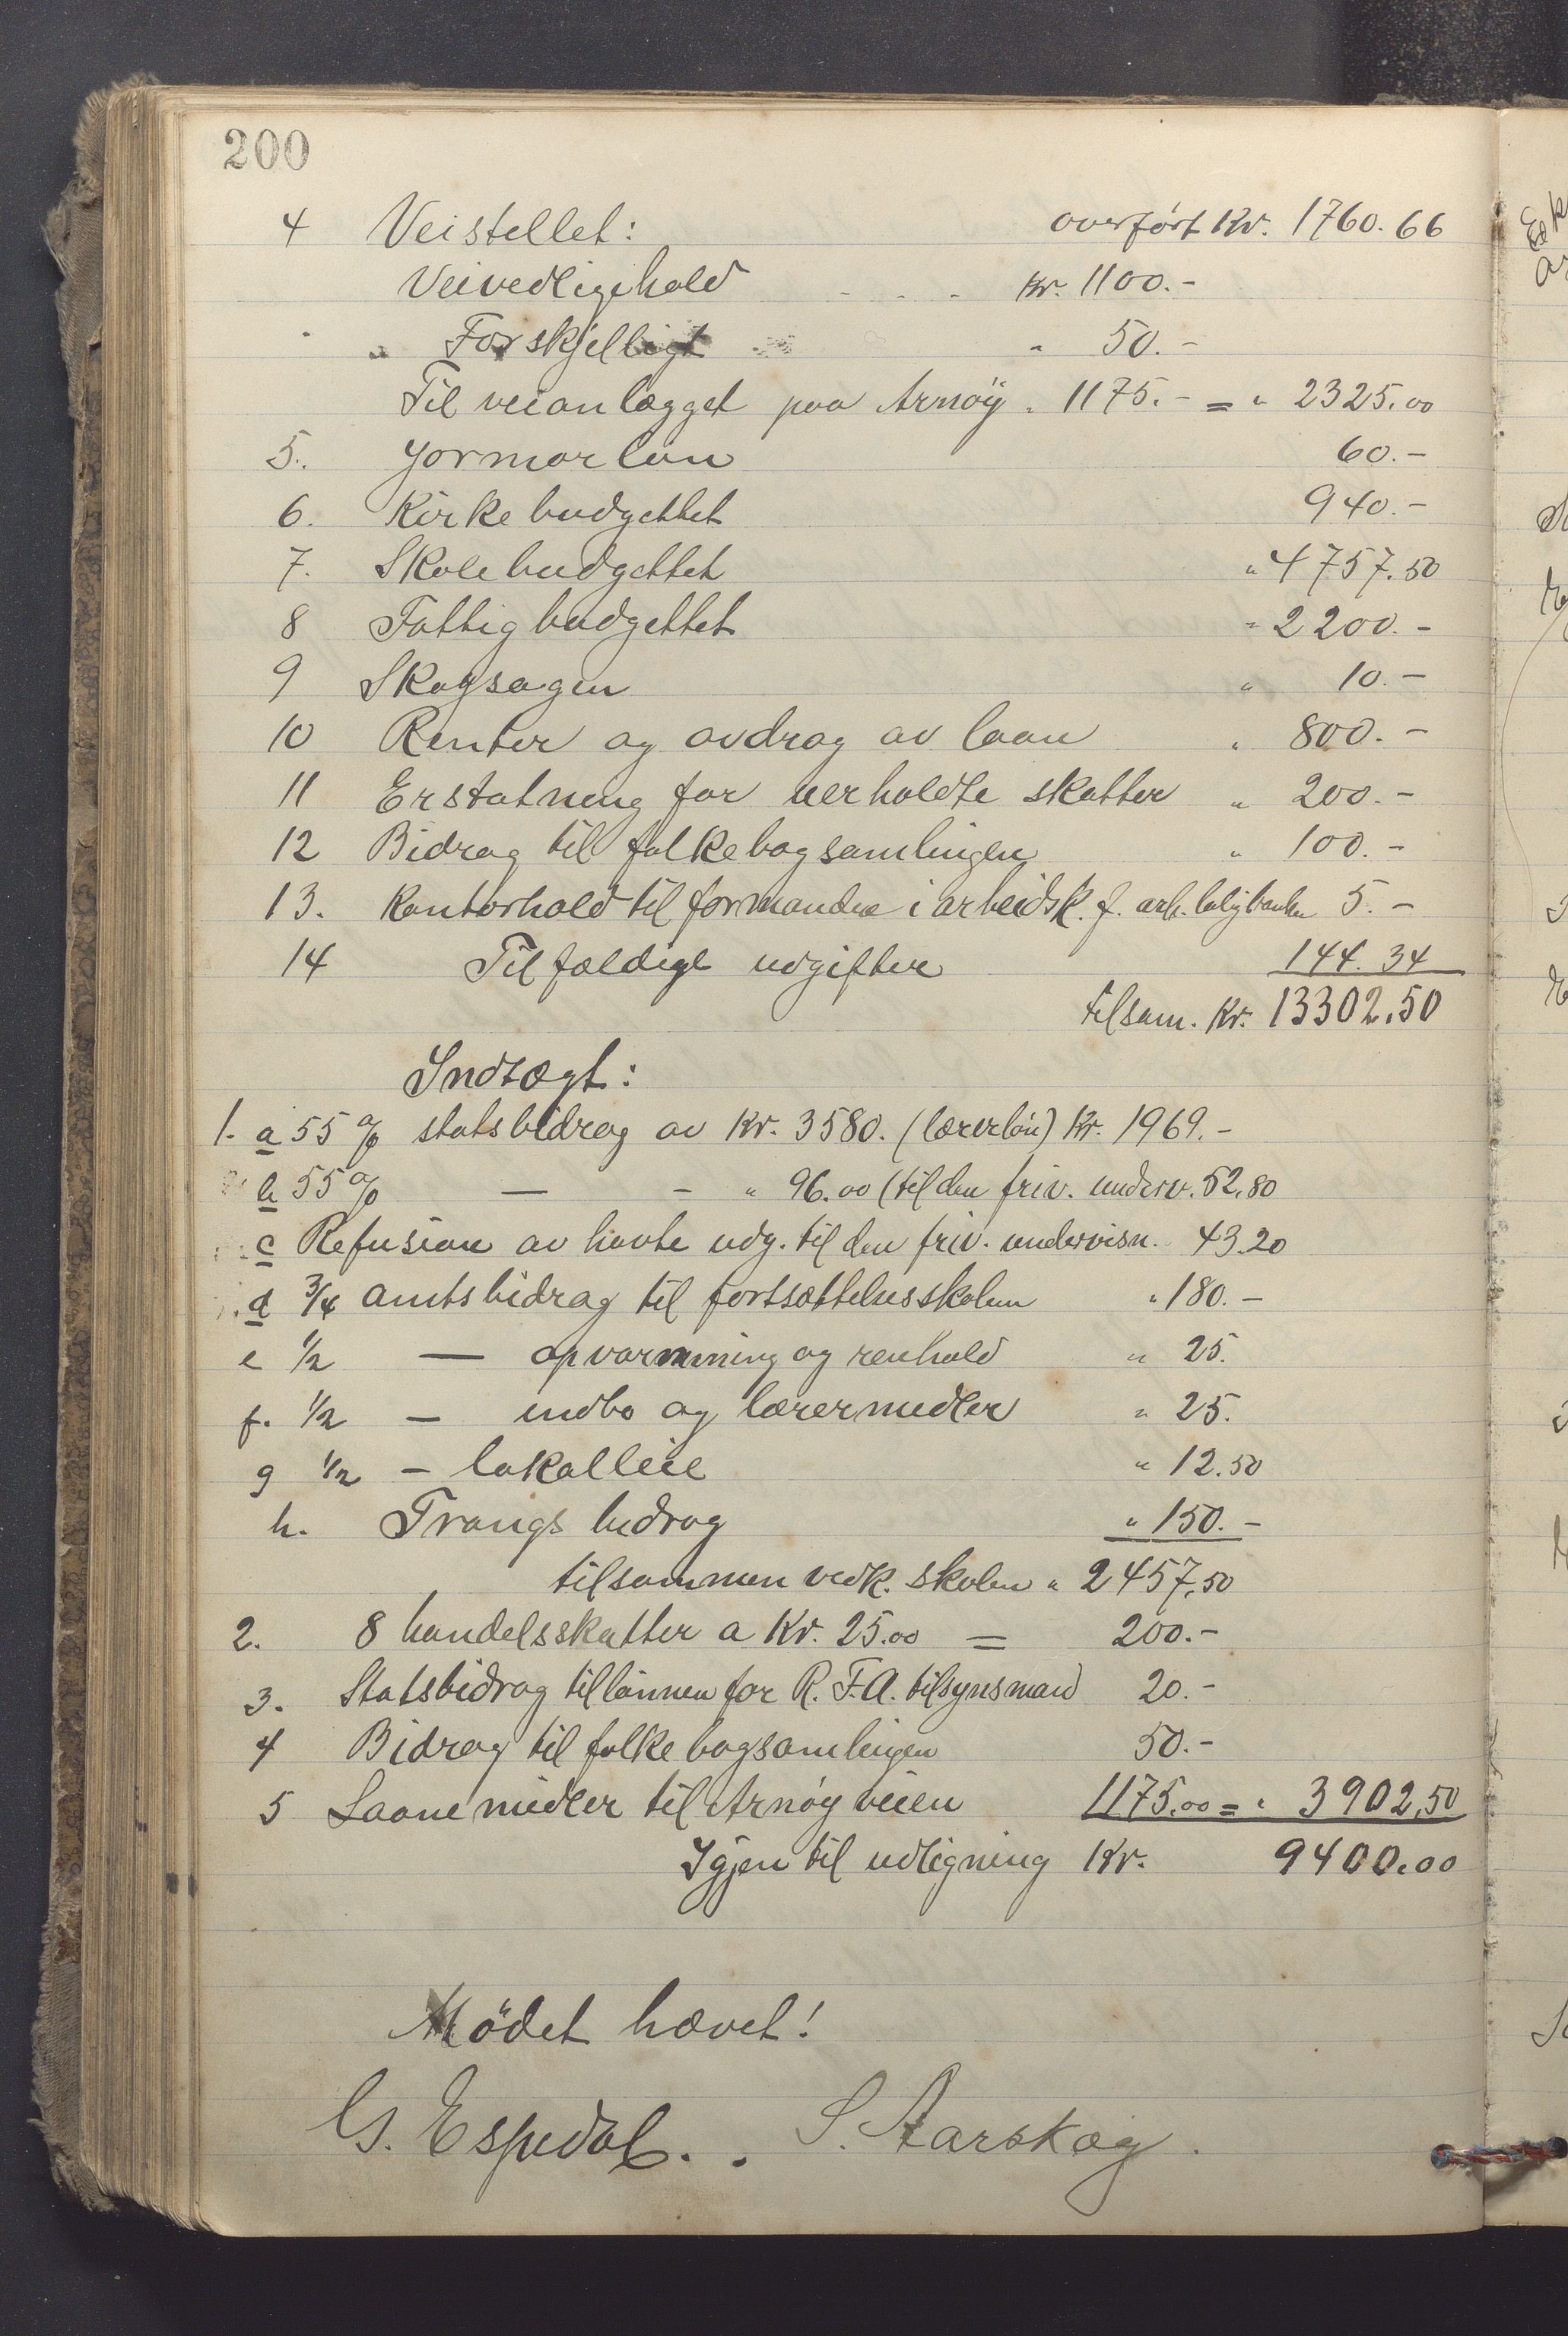 200
4 Veistellet: overført Kr. 1760.66
Veivedligehold - - - Kr. 1100.-
" Forskjelligt " 50.-
Til veianlægget paa Arnøy " 1175.- = " 2325.00
5. Jormorløn 60.-
6. Kirkebudgettet 940.-
7. Skolebudgettet " 4757.50
8 Fattigbudgettet " 2200.-
9 Skogsagen " 10.-
10 Renter og avdrag av laan " 800.-
11 Erstatning for uerholdte skatter " 200.-
12 Bidrag til folkebogsamlingen " 100.-
13. Kontorhold til formanden i arbeidsk. f. arb. boligbanken 5.-
14 Tilfældige udgifter 144.34
tilsam. Kr. 13302.50
Indtægt:
1. a 55 % statsbidrag av Kr. 3580. (lærerløn) Kr. 1969.-
b 55 % — - " 96.00 (til den friv. underv. 52.80
c Refusion av havte udg. til den friv. undervisn. 43.20
d 3/4 amtsbidrag til fortsættelsesskolen " 180.-
e 1/2 — opvarmning og renhold " 25.
f. 1/2 — indbo og lærermidler " 25.
g 1/2 - lokalleie " 12.50
h. Trangsbidrag " 150.-
tilsammen vedk. skolen " 2457.50
2. 8 handelsskatter a Kr. 25.00 = 200.-
3. Statsbidrag til lønnen for R. F. A. tilsynsmand 20.-
4 Bidrag til folkebogsamlingen 50.-
5 Laanemidler til Arnøyveien 1175.00 = " 3902.50
Igjen til udligning Kr. 9400.00
Mødet hævet!
G. Espedal. . S. Aarskog.